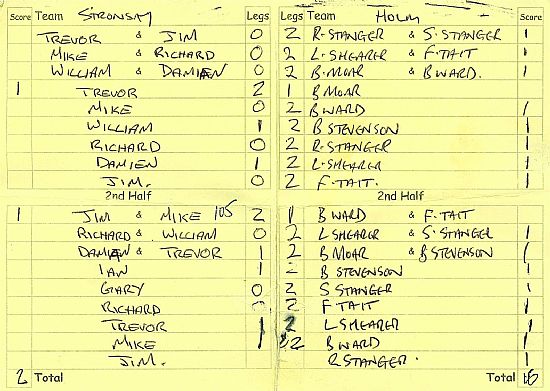 Score Team STRONSAY Legs Legs Team HOLM Score
TREVOR & JIM 0 2 R. STANGER & S. STANGER 1
MIKE & RICHARD 0 2 L. SHEARER & F. TAIT 1
WILLIAM & DAMIEN 0 2 B. MOAR & B WARD. 1
1 TREVOR 2 1 B MOAR
MIKE 0 2 B WARD 1
WILLIAM 1 2 B STEVENSON 1
RICHARD 0 2 R. STANGER 1
DAMIEN 1 2 L. SHEARER 1
JIM. 0 2 F. TAIT. 1
2nd Half 2nd Half
1 JIM & MIKE 105 2 1 B WARD & F. TAIT
RICHARD & WILLIAM 0 2 L SHEARER & S. STANGER 1
DAMIEN & TREVOR 1 2 B MOAR & B STEVENSON 1
IAN 1 2 B STEVENSON 1
GARY 0 2 S STANGER 1
RICHARD 0 2 F TAIT 1
TREVOR 1 2 L SHEARER 1
MIKE 1 2 B WARD 1
JIM. R STANGER. 1
2 Total Total 16